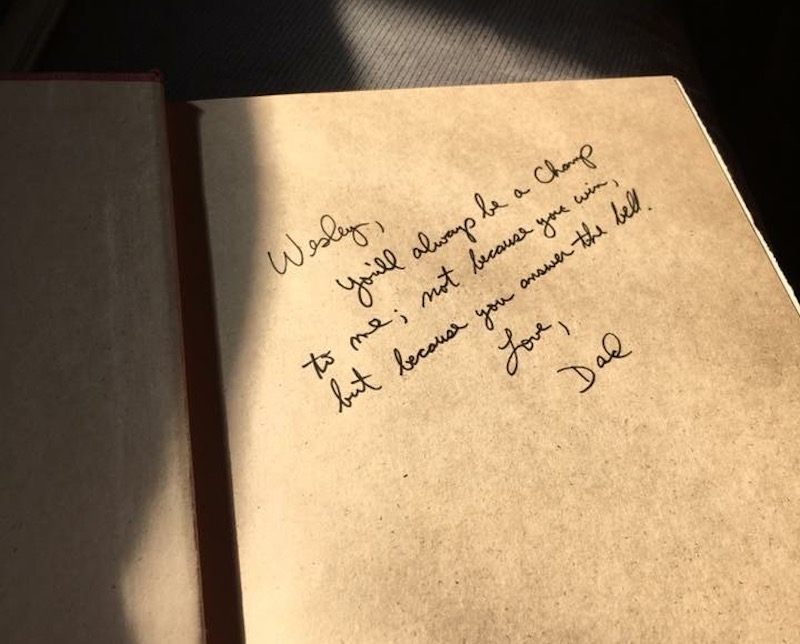 Wesley,
You'll always be a Champ
to me; not because you win,
but because you answer the bell.
Love,
Dad